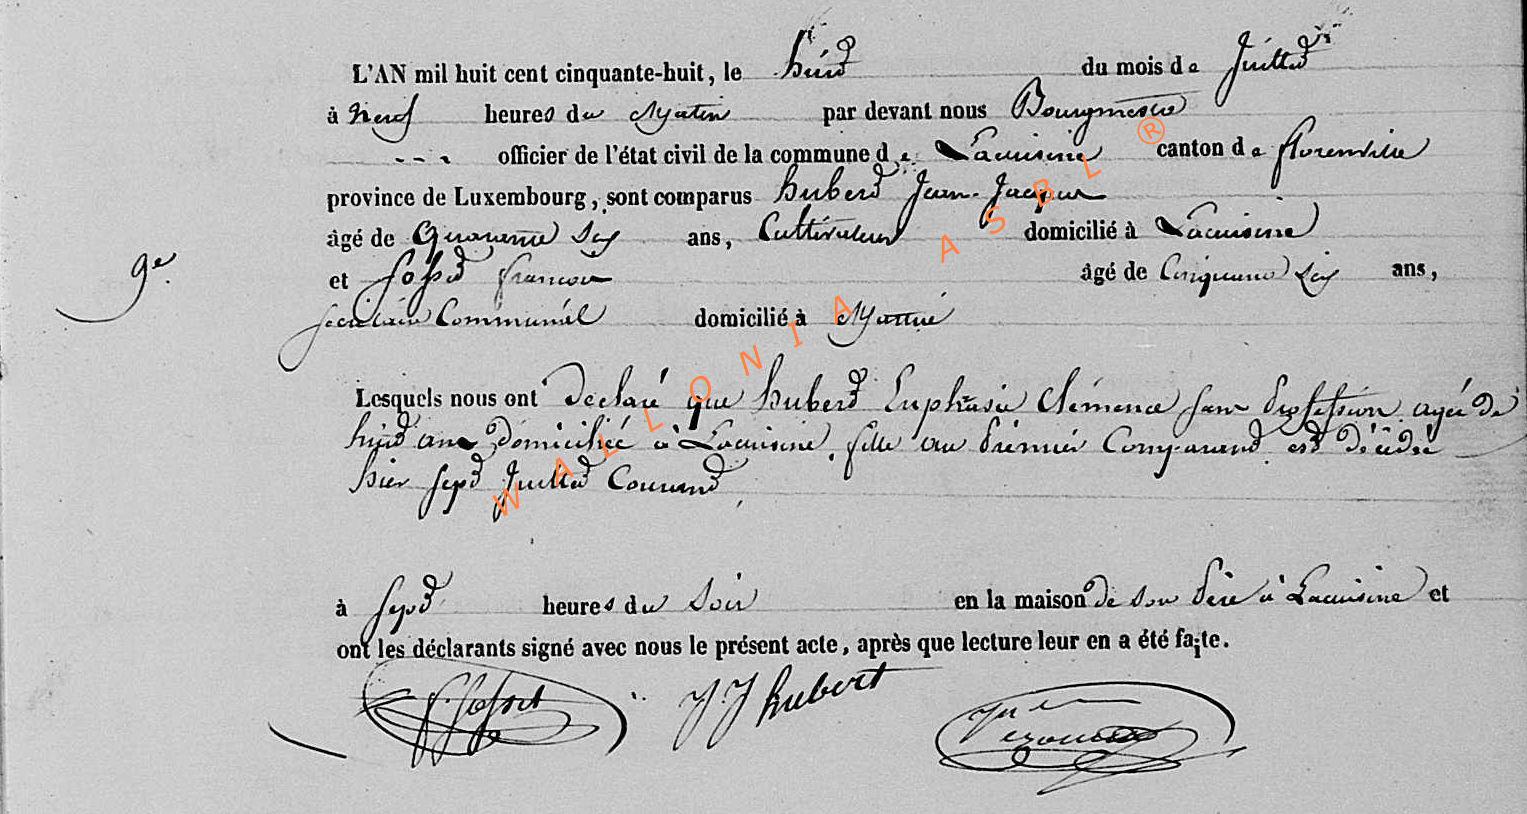 L'AN mil huit cent cinquante-huit, le huit du mois de Juillet
à neuf heures du Matin par devant nous Bourgmestre
--- officier de l'état civil de la commune de Lacuisine canton de florenville
province de Luxembourg, sont comparus hubert Jean-Jacques
âgé de Quarante Six ans, Cultivateur domicilié à Lacuisine
9e.
et françois âgé de Cinquante Six ans,
Secrétaire Communal domicilié à
Lesquels nous ont déclaré que hubert Euphrasie Clémence sans profession agée de
huit ans domiciliée à Lacuisine, fille au premier Comparant est décédée
hier sept Juillet Courant
à sept heures du Soir en la maison de son père à Lacuisine et
ont les déclarants signé avec nous le présent acte, après que lecture leur en a été faite.
J J hubert
WALLONIA ASBL ®